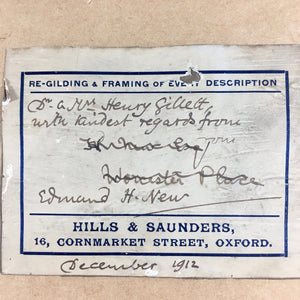 RE-GILDING & FRAMING OF EVERY DESCRIPTION
Dr. & Mrs Henry Gillett
with kindest regards from
Worcester Place
Edmund H. New
HILLS & SAUNDERS,
16, CORNMARKET STREET, OXFORD.
December 1912